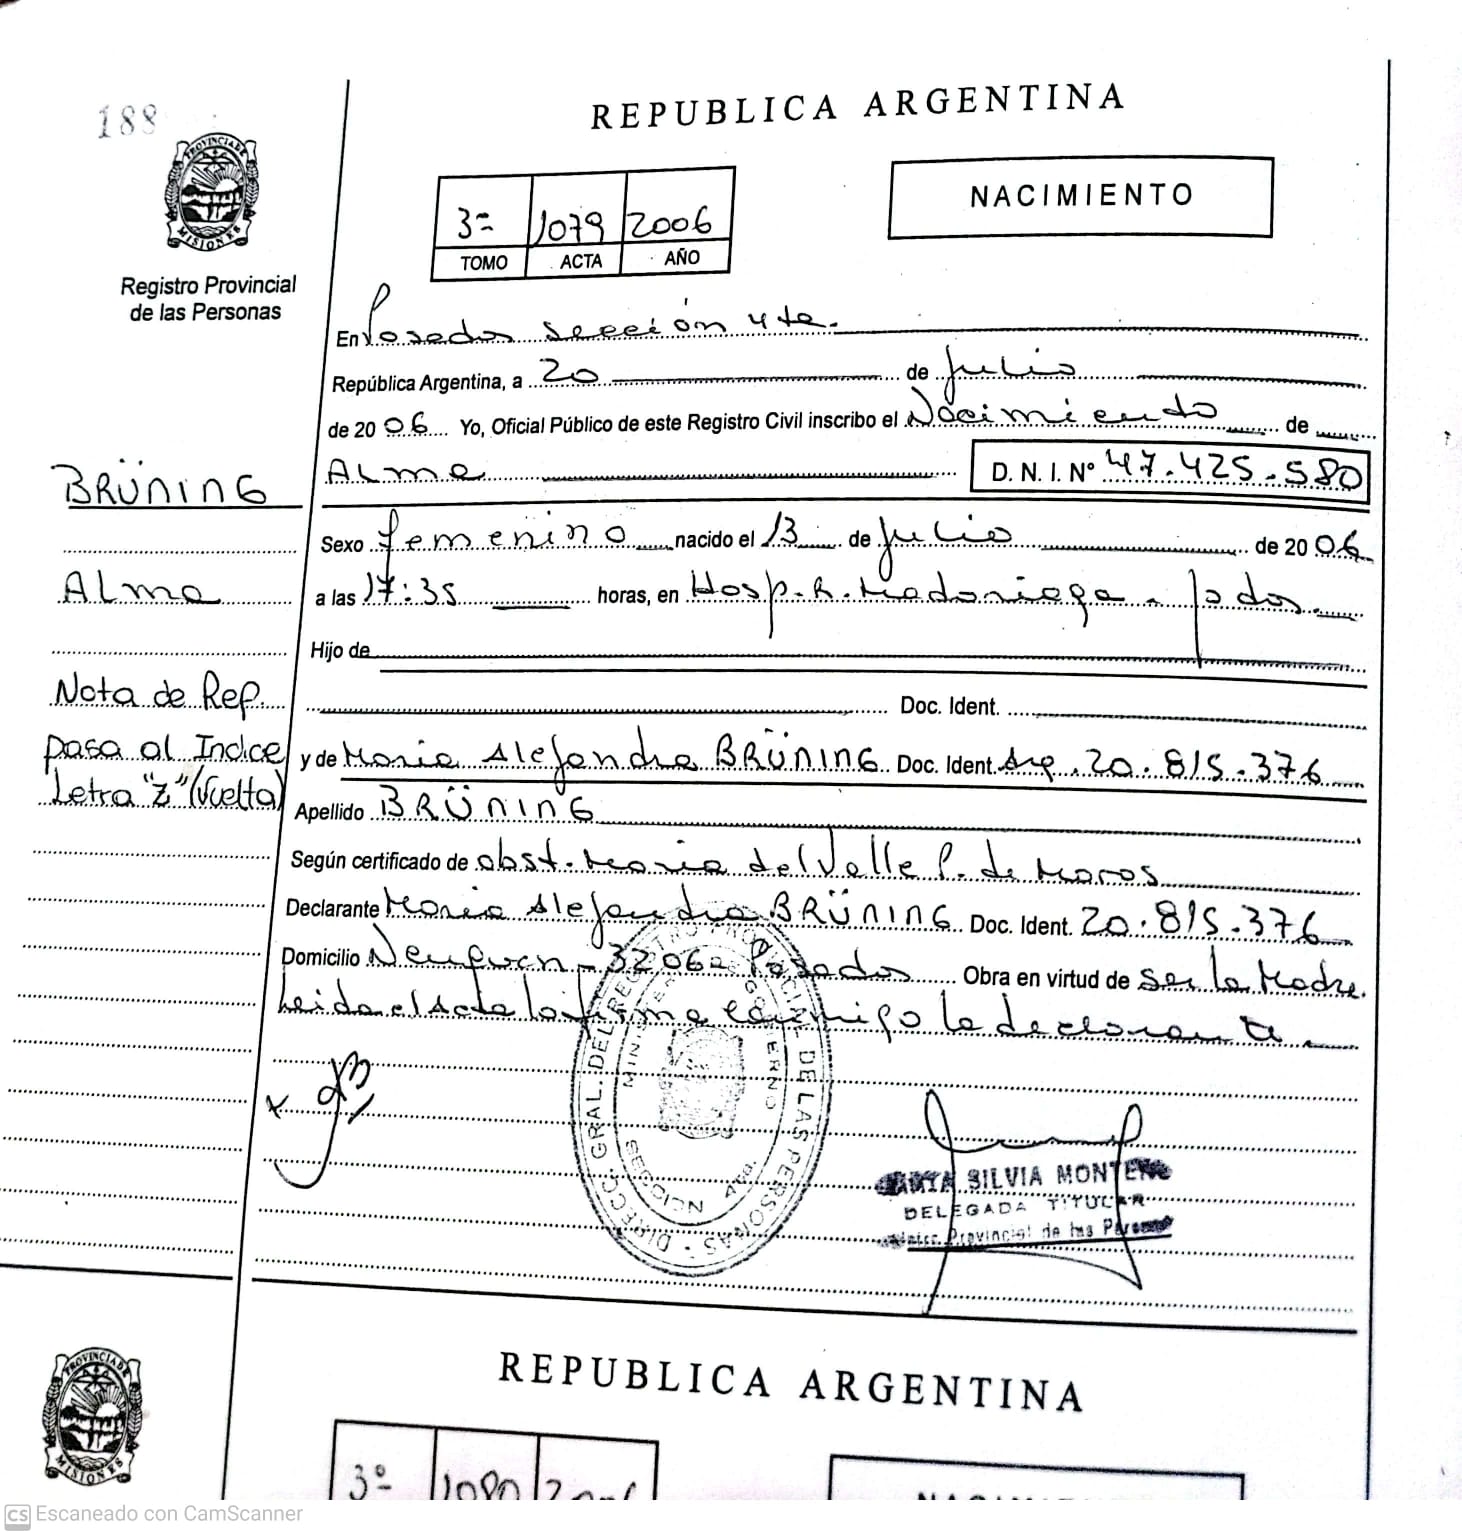 188
PROVINCIA DE
MISIONES
Registro Provincial
de las Personas
REPUBLICA ARGENTINA
NACIMIENTO
3º 1079 2006
TOMO ACTA AÑO
En Posadas sección 4ta.
República Argentina, a 20 de Julio
de 2006 Yo, Oficial Público de este Registro Civil inscribo el Nacimiento de
Alma D. N. I. Nº 47.425.580
Sexo femenino nacido el 13 de julio de 2006
a las 17:35 horas, en Hosp. R. Madariaga - Pdas.
Hijo de
Doc. Ident.
y de Maria Alejandra BRÜNING Doc. Ident. Arg. 20.815.376
Apellido BRÜNING
Según certificado de obst. Maria del Valle P. de Maros
Declarante Maria Alejandra BRÜNING Doc. Ident. 20.815.376
Domicilio Neuquen - 3206 - Posadas Obra en virtud de ser la Madre.
Leida el Acta la firma conmigo la declarante
BRÜNING
Alma
Nota de Rep.
pasa al Indice
Letra "Z" (Vuelta)
DIRECC. GRAL. DEL REGISTRO PROVINCIAL DE LAS PERSONAS
MINISTERIO GOBIERNO
MISIONES
SILVIA MONTENG
DELEGADA TITULAR
Provincial de las Personas
PROVINCIA DE
MISIONES
REPUBLICA ARGENTINA
3º 1080 2006
NACIMIENTO
CS Escaneado con CamScanner